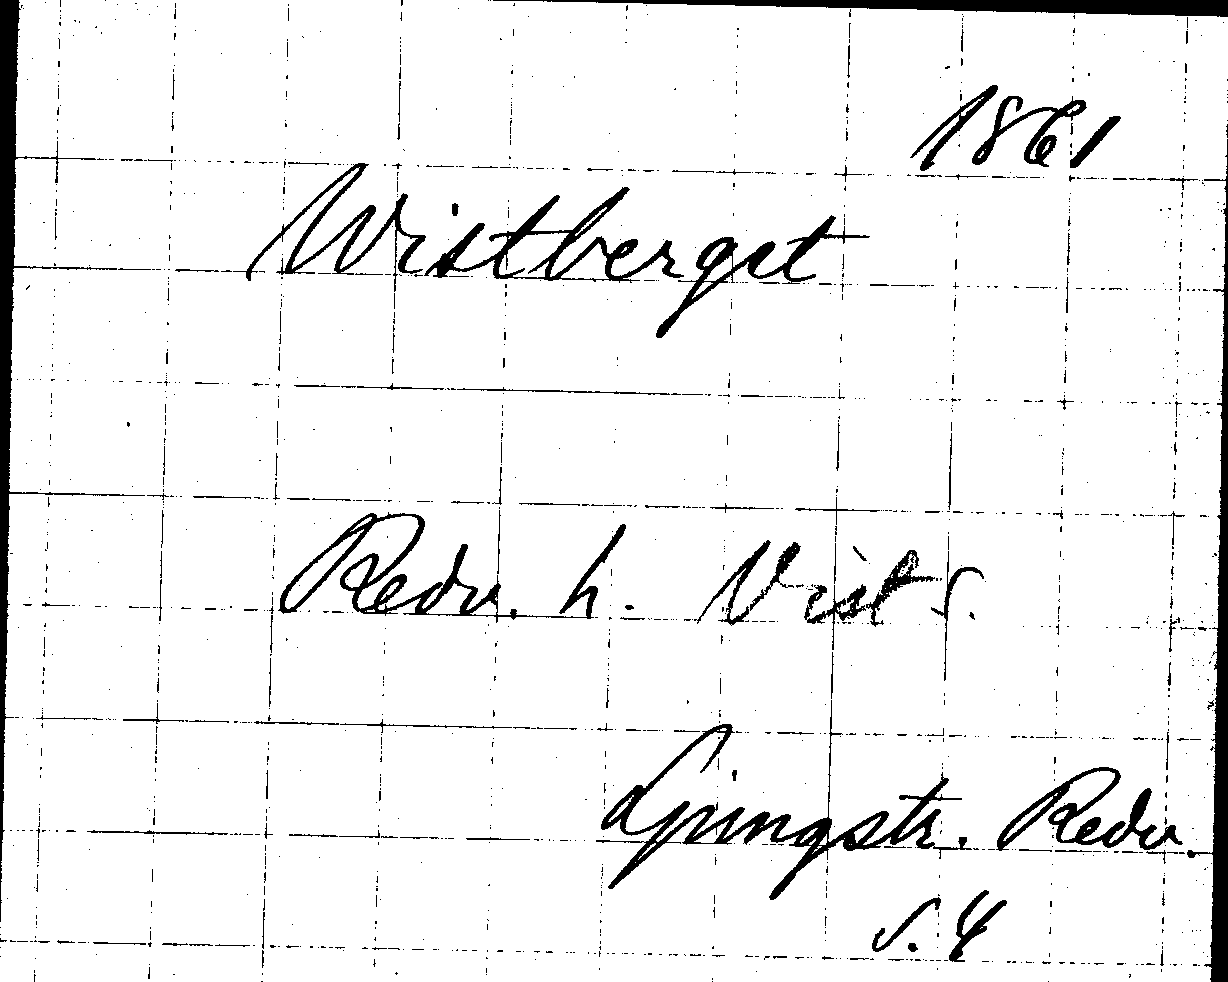 1861
Wistberget
Redv. h. Vist s.
Ljungstr. Redv.
s. 4